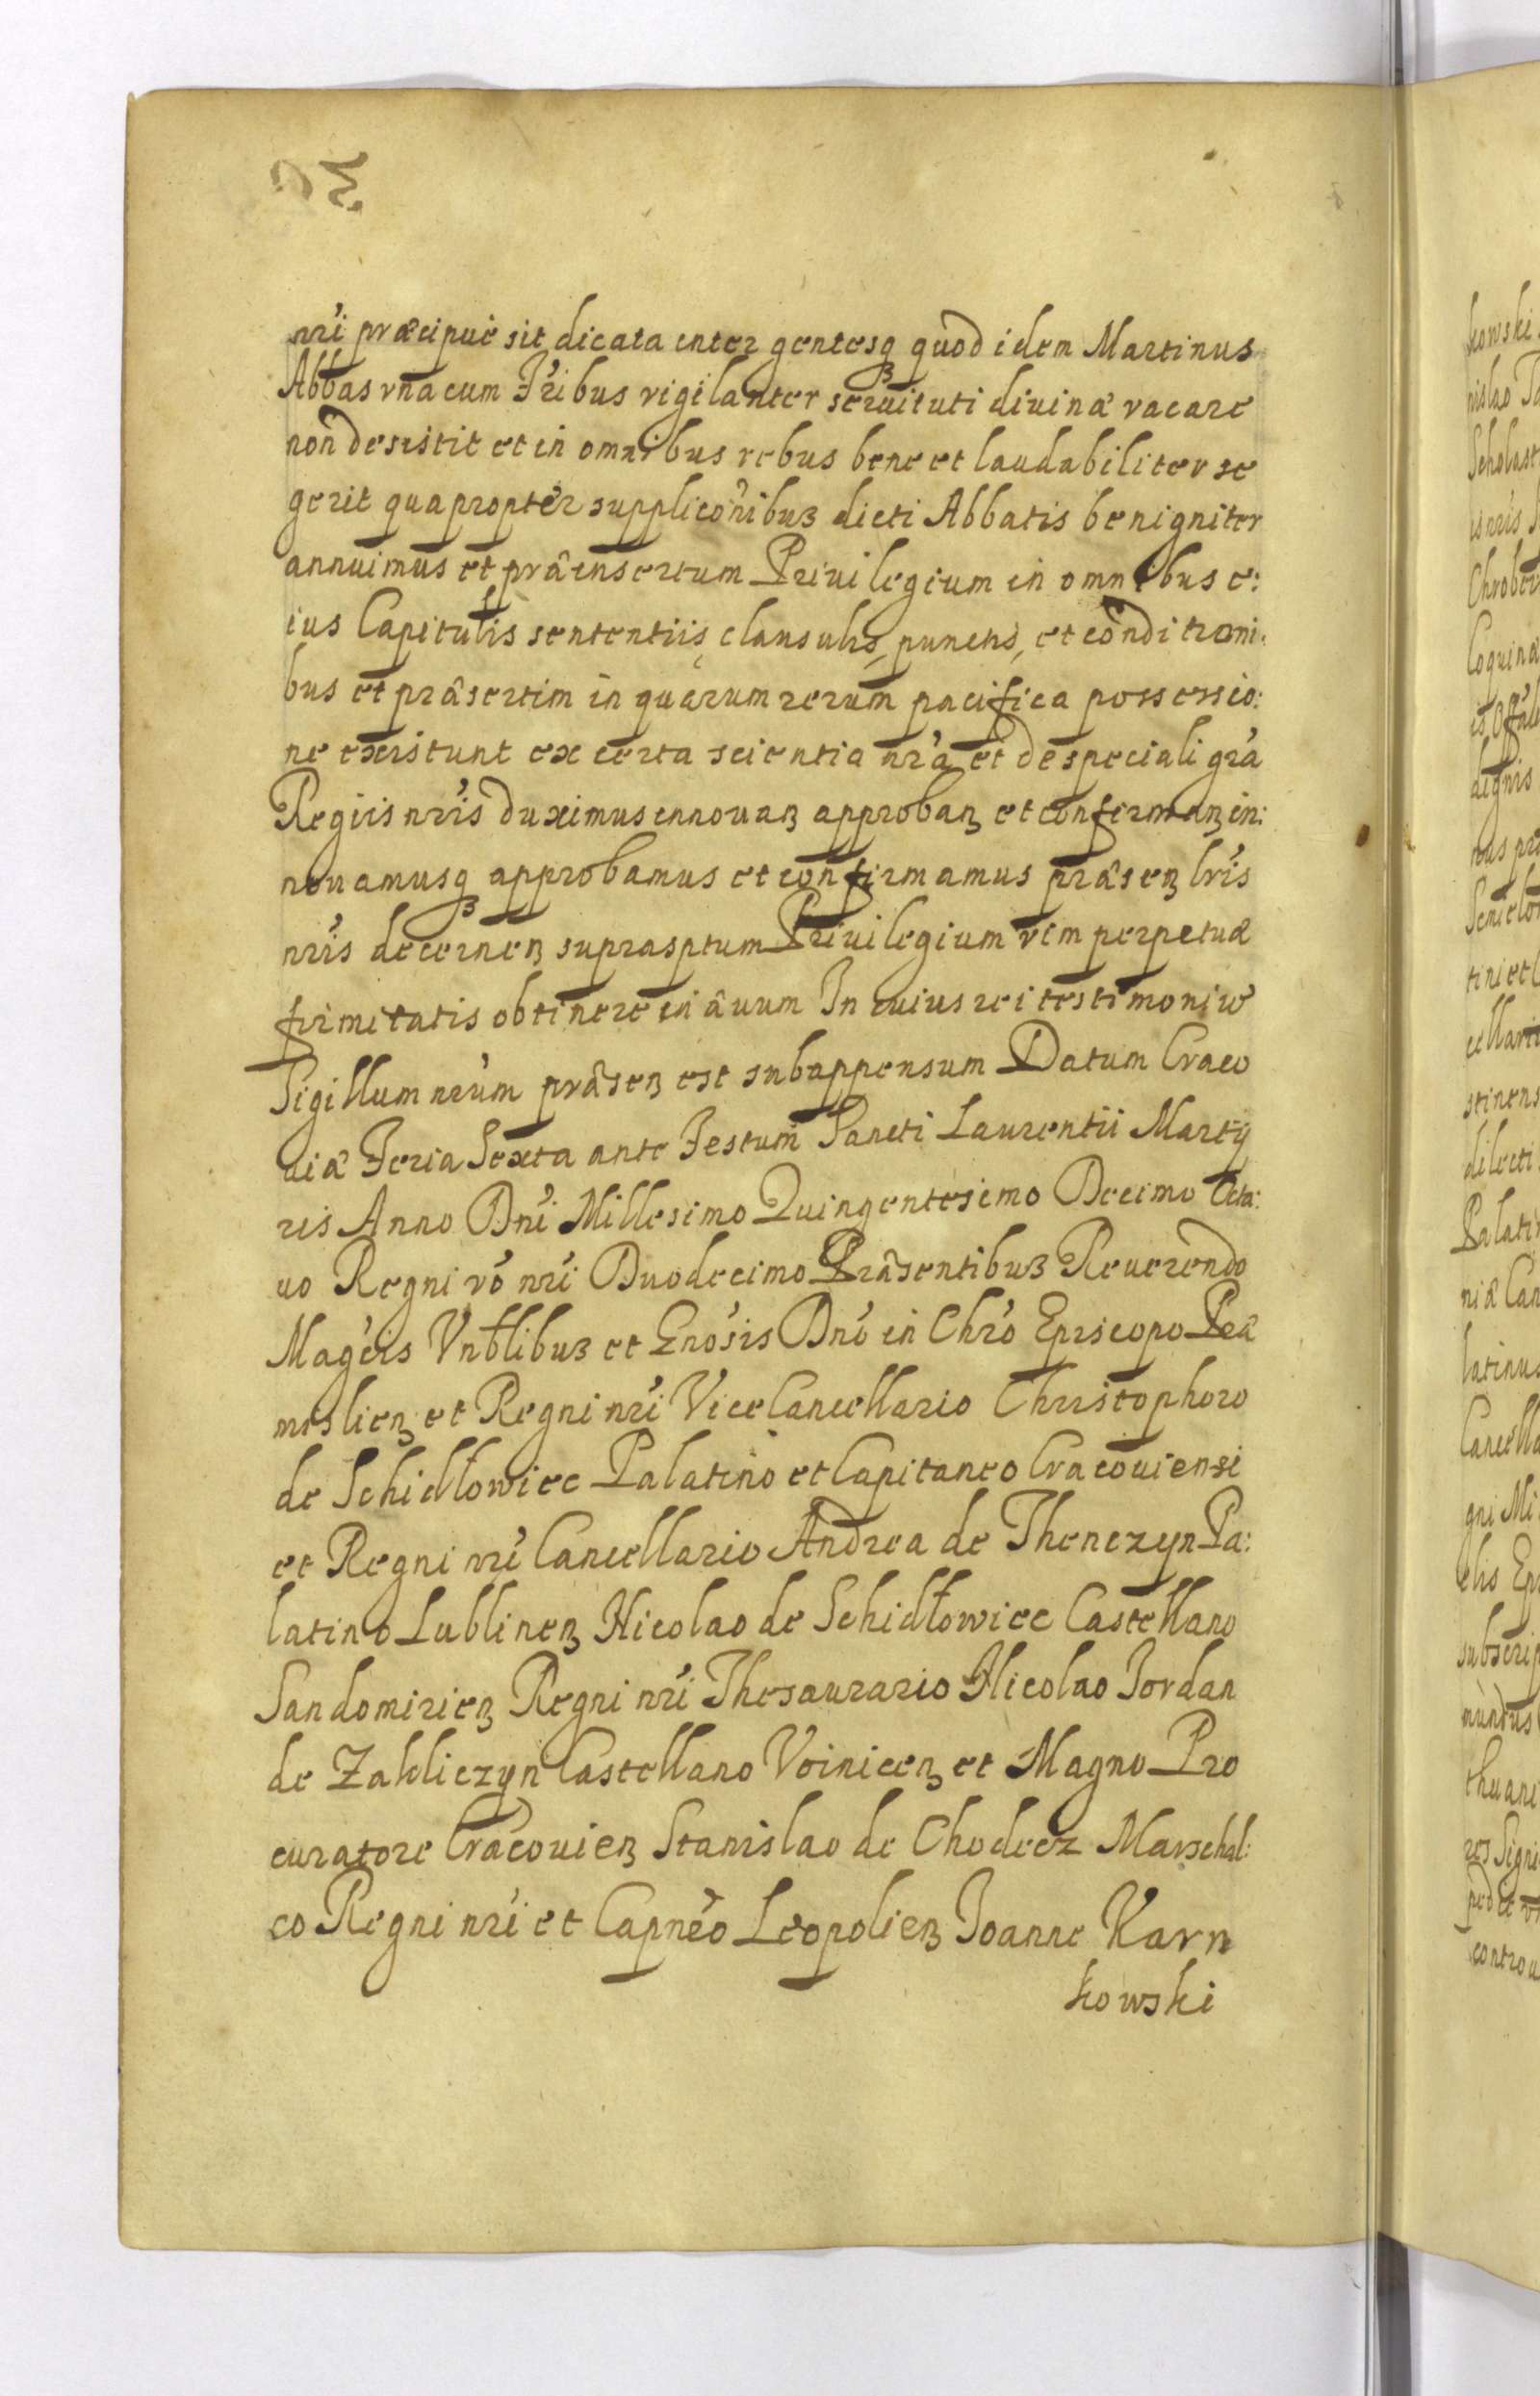 nr̃i præcipuè sit dicata inter gentesqꝫ quod idem Martinus
Abbas vna cum Fr̃ibus vigilanter seruituti diuinæ vacare
non desistit et in omnibus rebus bene et laudabiliter se
gerit quapropter supplicõnibuꝫ dicti Abbatis benigniter
annuimus et præinsertum Priuilegium in omnibus e:
ius Capitulis sententiis, clausulis, punctis, et conditioni:
bus et præsertim in quarum rerum pacifica possessio:
ne existunt ex certa scientia nr̃a et de speciali gr̃a
Regiis nr̃is duximus innouanꝫ approbanꝫ et confirmanꝫ in:
nouamusqꝫ approbamus et confirmamus præsenꝫ lr̃is
nr̃is decernenꝫ suprasptum Priuilegium vim perpetuæ
firmitatis obtinere in æuum In cuius rei testimoniũ
Sigillum nr̃um præsenꝫ est subappensum Datum Craco
uiæ Feria Sexta ante Festum Sancti Laurentii Marty
ris Anno Dñi Millesimo Quingentesimo Decimo Octa:
uo Regni vo nr̃i Duodecimo Præsentibuꝫ Reuerendo
Magcis Vnblibuꝫ et Gnosis Dño in Chr̃o Episcopo Præ
mislienꝫ et Regni nr̃i Vice Cancellario Christophoro
de Schidłowiec Palatino et Capitaneo Cracouiensi
et Regni nr̃i Cancellario Andrea de Thenczyn Pa:
latino Lublinenꝫ Nicolao de Schidłowiec Castellano
Sandomirienꝫ Regni nr̃i Thesaurario Nicolao Jordan
de Zakliczyn Castellano Voinicenꝫ et Magno Pro
curatore Cracouienꝫ Stanislao de Chodecz Marschal:
co Regni nr̃i et Capneo Leopolienꝫ Joanne Karn
kowski